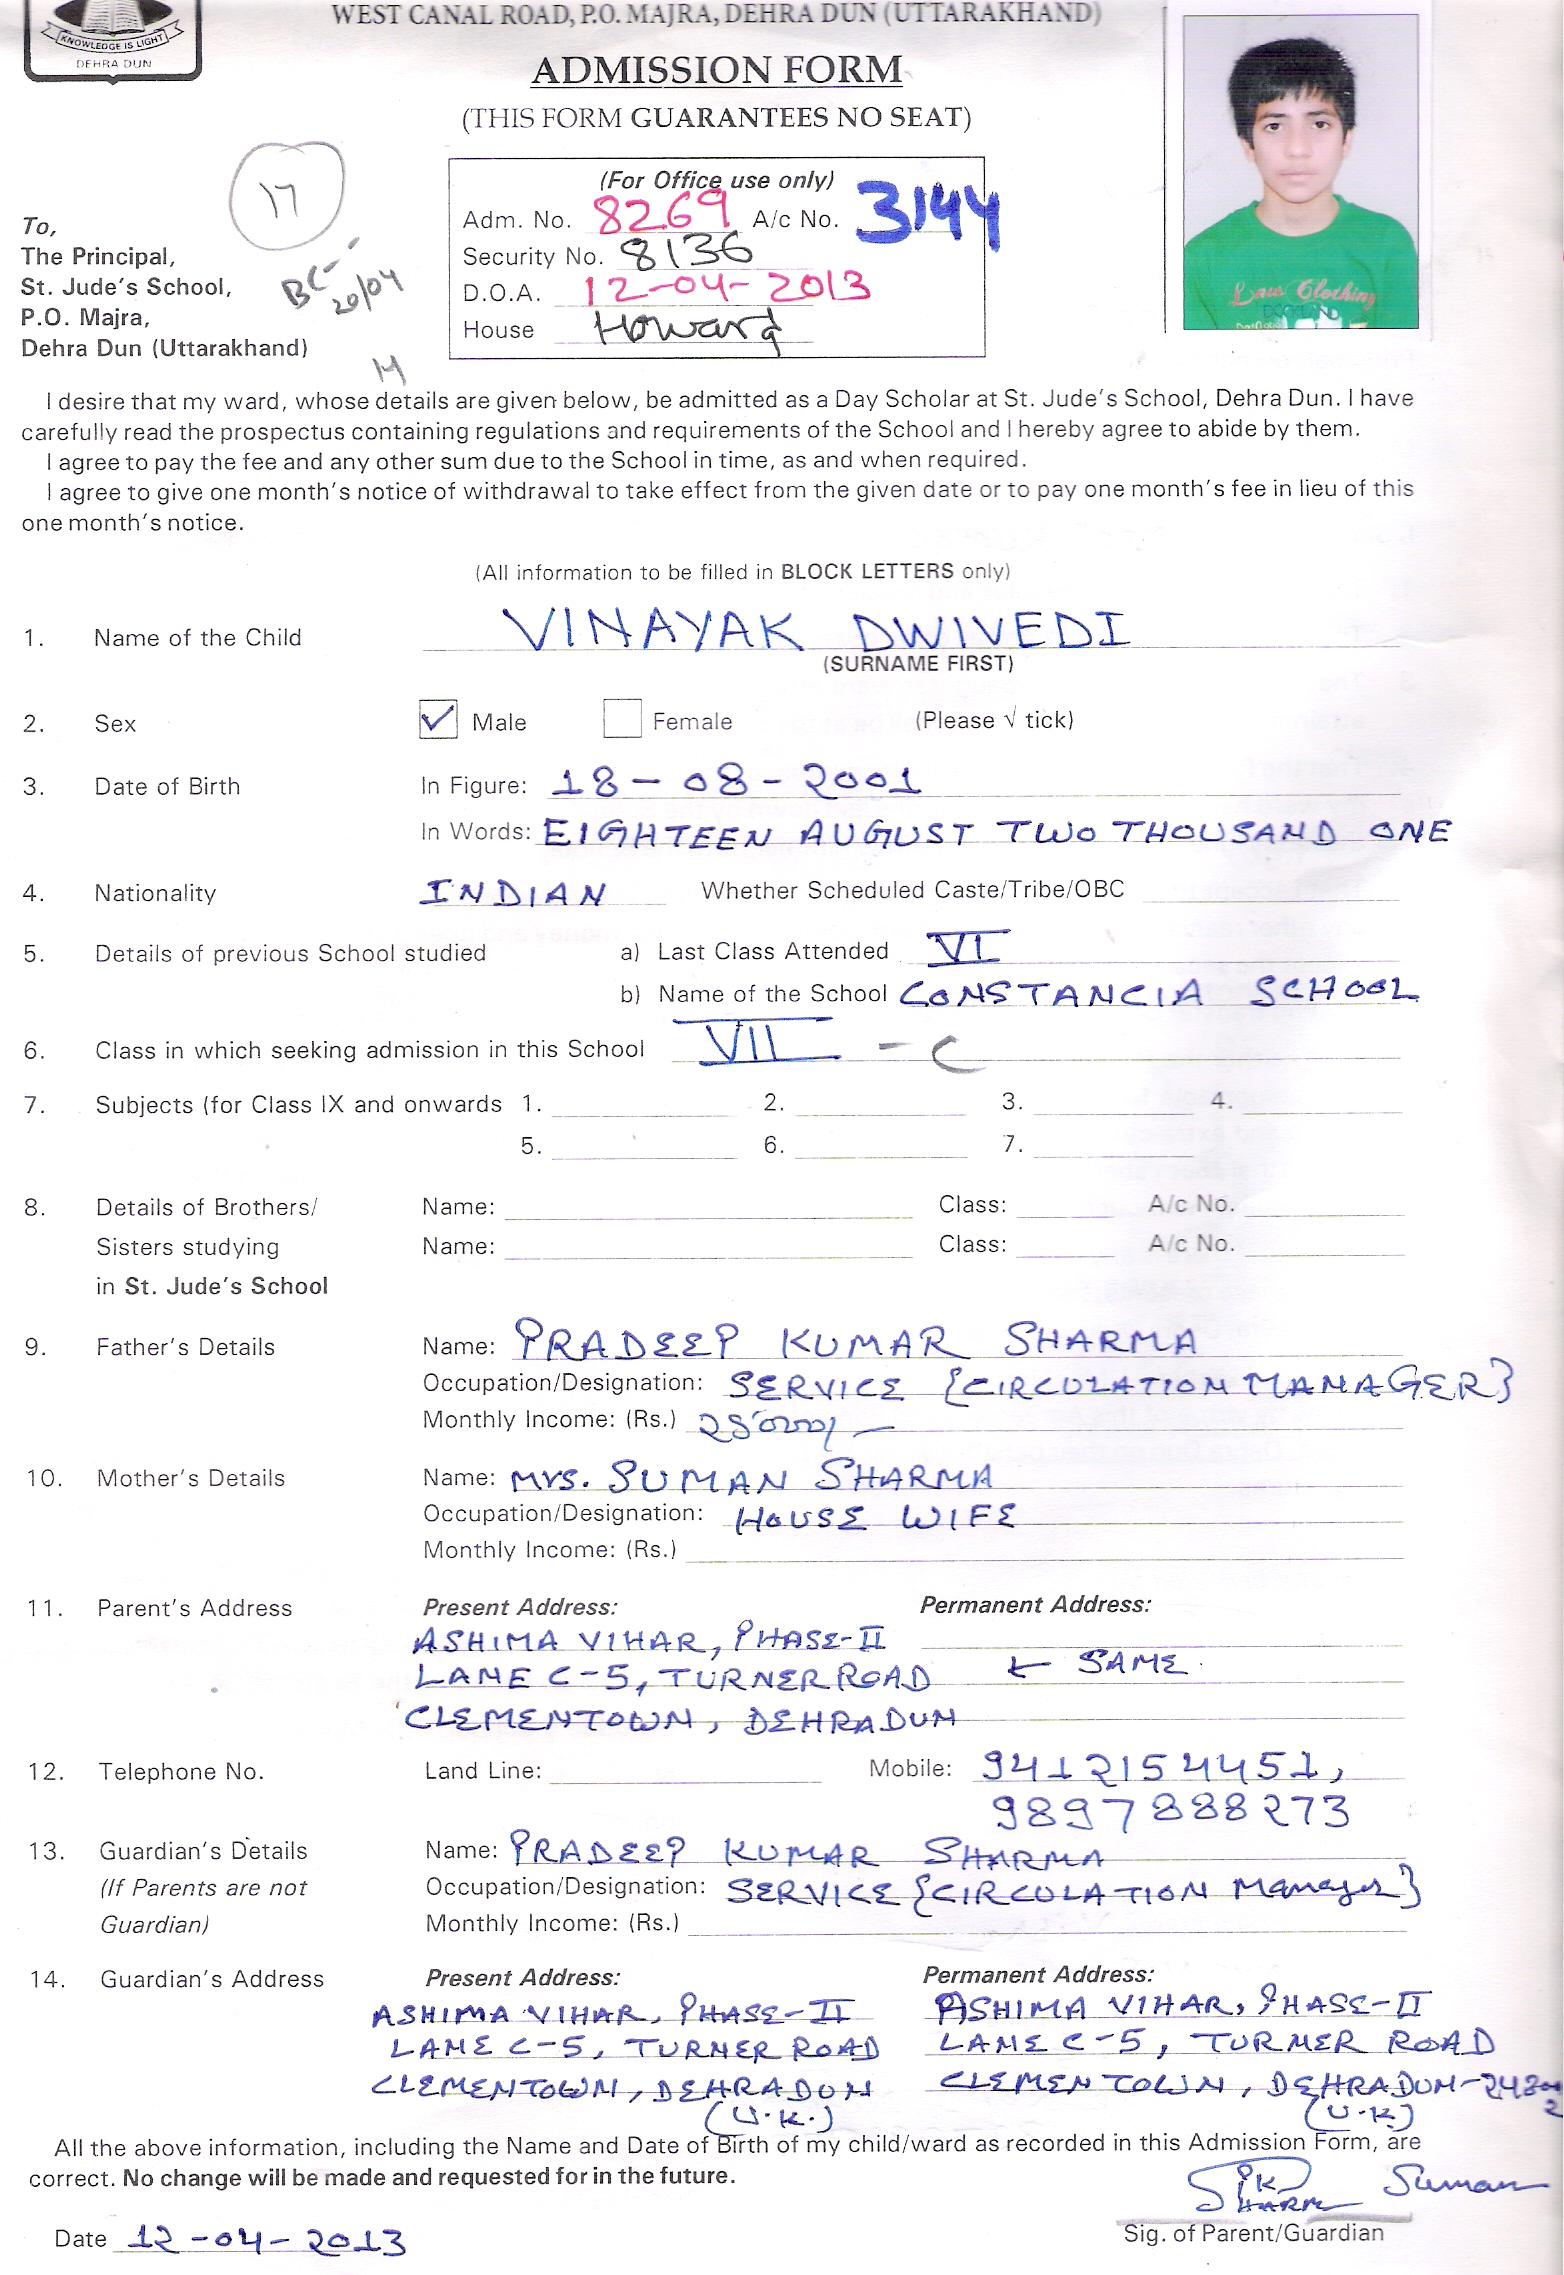 WEST CANAL ROAD, P.O. MAJRA, DEHRA DUN (UTTARAKHAND)
KNOWLEDGE IS LIGHT
DEHRA DUN
ADMISSION FORM
(THIS FORM GUARANTEES NO SEAT)
17
(For Office use only)
Adm. No. 8269 A/c No. 3144
Security No. 8136
D.O.A. 12-04-2013
House Howard
To,
The Principal,
St. Jude's School,
P.O. Majra,
Dehra Dun (Uttarakhand)
BC-
20/04
Laus Clothing
DOCKLAND
I desire that my ward, whose details are given below, be admitted as a Day Scholar at St. Jude's School, Dehra Dun. I have
carefully read the prospectus containing regulations and requirements of the School and I hereby agree to abide by them.
I agree to pay the fee and any other sum due to the School in time, as and when required.
I agree to give one month's notice of withdrawal to take effect from the given date or to pay one month's fee in lieu of this
one month's notice.
(All information to be filled in BLOCK LETTERS only)
1. Name of the Child VINAYAK DWIVEDI
(SURNAME FIRST)
2. Sex ✓ Male Female (Please √ tick)
3. Date of Birth In Figure: 18-08-2001
In Words: EIGHTEEN AUGUST TWO THOUSAND ONE
4. Nationality INDIAN Whether Scheduled Caste/Tribe/OBC
5. Details of previous School studied a) Last Class Attended VI
b) Name of the School CONSTANCIA SCHOOL
6. Class in which seeking admission in this School VII - C
7. Subjects (for Class IX and onwards 1. 2. 3. 4.
5. 6. 7.
8. Details of Brothers/ Name: Class: A/c No.
Sisters studying Name: Class: A/c No.
in St. Jude's School
9. Father's Details Name: PRADEEP KUMAR SHARMA
Occupation/Designation: SERVICE {CIRCULATION MANAGER}
Monthly Income: (Rs.) 25000/-
10. Mother's Details Name: Mrs. SUMAN SHARMA
Occupation/Designation: HOUSE WIFE
Monthly Income: (Rs.)
11. Parent's Address Present Address: Permanent Address:
ASHIMA VIHAR, PHASE-II
LANE C-5, TURNER ROAD ← SAME
CLEMENTOWN, DEHRADUN
12. Telephone No. Land Line: Mobile: 9412154451,
9897888273
13. Guardian's Details Name: PRADEEP KUMAR SHARMA
(If Parents are not Occupation/Designation: SERVICE {CIRCULATION Manager}
Guardian) Monthly Income: (Rs.)
14. Guardian's Address Present Address: Permanent Address:
ASHIMA VIHAR, PHASE-II ASHIMA VIHAR, PHASE-II
LANE C-5, TURNER ROAD LANE C-5, TURNER ROAD
CLEMENTOWN, DEHRADUN CLEMENTOWN, DEHRADUN-
(U.K.) (U.K.)
All the above information, including the Name and Date of Birth of my child/ward as recorded in this Admission Form, are
correct. No change will be made and requested for in the future.
PK SHARMA Suman
Date 12-04-2013 Sig. of Parent/Guardian